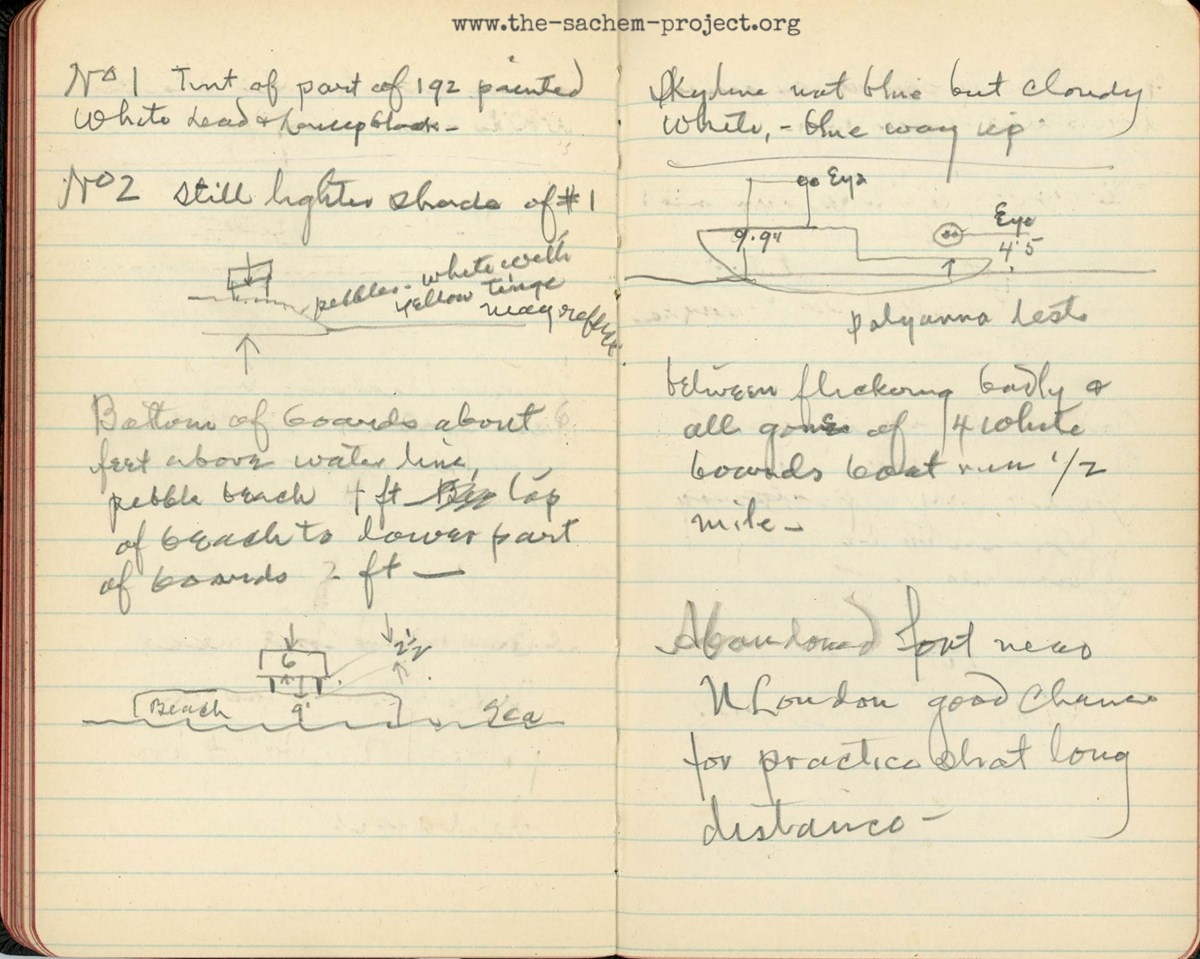 www.the-sachem-project.org
No 1 Tint of part of 192 painted
White Lead & Lampblack -
No 2 Still lighter shade of #1
pebbles - white with
yellow tinge
may reflect
Bottom of boards about 6
feet above water line,
pebble beach 4 ft top
of beach to lower part
of boards 2 ft —
6
2 1/2
Beach
9'
Sea
Skyline not blue but cloudy
white, - blue way up
Eye
9.94
Eye
4'5
polyanna tests
between flickering badly &
all gone of 14 white
boards boat run 1/2
mile -
Abandoned fort near
N London good chance
for practice shot long
distance -